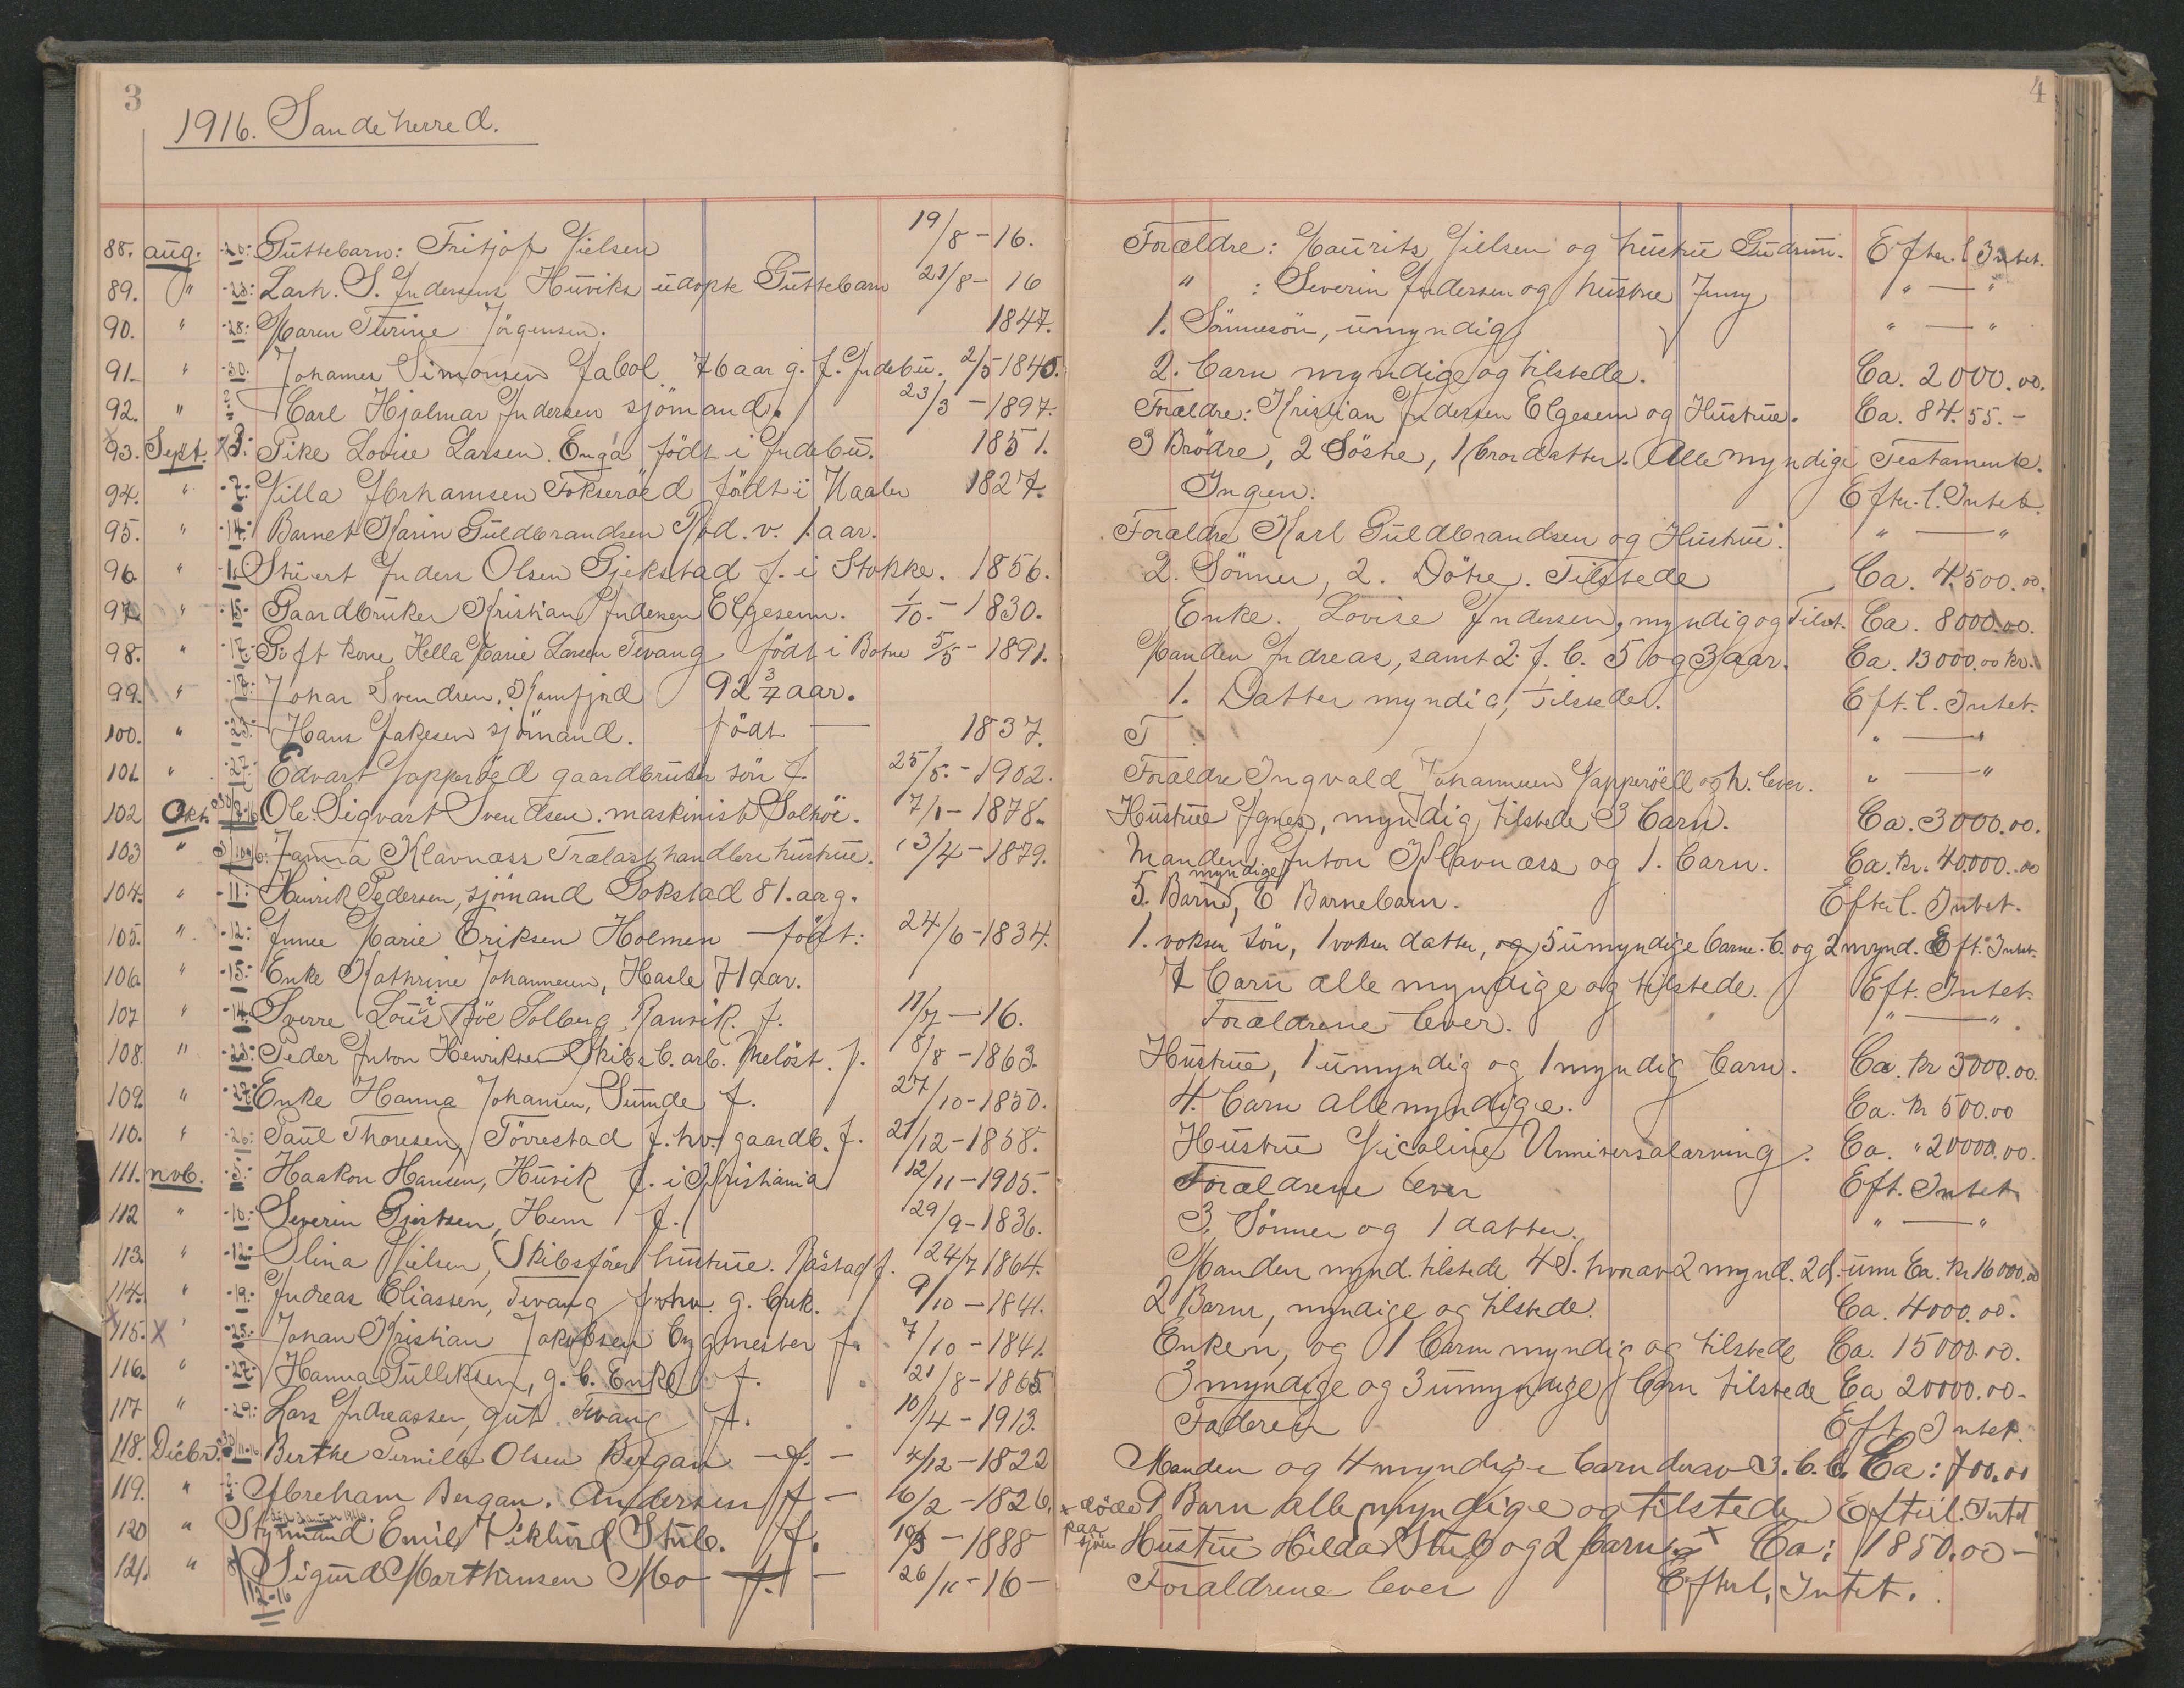 3
1916. Sandeherred.
88. aug. -20: Guttebarn: Fritjof Nielsen 19/8-16.
89. " -23: Lark. S. Andersens Huviks udøpte Guttebarn 21/8-16
90. " -28: Maren Turine Jörgensen. 1847.
91. " -30. Johannes Simonsen Jabol 76 aar g. f. Andebu. 2/5 1840.
92. " Carl Hjalmar Andersen sjömand. 23/3-1897.
93. Sept. 3: Pike Lovise Larsen. Engå födt i Andebu. 1851.
94. " -7: Nilla Abrhamsen Fokseröed födt i Vaaler 1827.
95. " -14. Barnet Karin Guldbrandsen Rød. v. 1 aar.
96. " -1. Stuert Anders Olsen Gjekstad f. i Stokke. 1856.
97. " -15- Gaardbruker Kristian Andersen Elgesem. 1/10.-1830.
98. " -17- Gift kone Hella Marie Larsen Tevang födt i Botne 5/5-1891.
99. " -17- Johan Svendsen, Kamfjord 92 3/4 aar.
100. " -23- Hans Jakesen sjömand. födt — 1837.
101. " -27- Edvart Napperöed gaardbruker sön f. 25/5.-1902.
102 Okt. Ole Sigvart Svendsen. maskinist Solhöi. 7/1-1878.
103 " Janna Klavnæss Trælasthandlers hustrue. 13/4-1879.
104. " -11: Henrik Pedersen, sjömand Gokstad 81. aar g.
105. " -12: Anne Marie Eriksen Holmen — födt: 24/6-1834.
106. " -15: Enke Kathrine Johannesen, Hasle 71 aar.
107 " -14. Sverre Louis Böe Solberg, Ranvik. f. 11/7-16.
108. " -23: Peder Anton Henriksen Skibs b. arb. Melöst. f. 8/8-1863.
109. " -27: Enke Hanna Johansen, Sunde f. 27/10-1850.
110. " -26: Paul Thoresen, Törrestad f. hv. gaardb. f. 21/12-1858.
111. nvb. -5: Haakon Hansen, Huvik f. i Kristiania 12/11-1905.
112 " -10: Severin Gjertsen, Hem f. 29/9-1836.
113. " -12: Olina Nielsen, Skibsförer hustrue. Råstad f. 24/7 1864.
114. " -19: Andreas Eliassen, Tevang forhv. g. bruk. 9/10-1841.
X115. X -25: Johan Kristian Jakobsen bygmester f. 7/10-1841.
116. " -27: Hanna Gulliksen, g. b. Enke f. 21/8-1865.
117 " -29: Lars Andreassen, gut Tevang f. 10/4-1913.
118. Decbr. 30/11-16 Berthe Pernille Olsen Bergan - f. - 4/12-1822
119. " -2: Abreham Bergan. Andersen f - 6/2-1826,
120 " Styrmand Emil Viklund Stub. f. 10/3-1888
121. " 8/12-16 Sigurd Marthinsen Mo f. - 26/11-16-
4
Foreldre: Maurits Nielsen og hustrue Gudrun. Efter. l Intet.
" : Severin Andersen og hustrue Jenny " — "
1. Sönnesön, umyndig " — "
2. barn myndige og tilstede. Ca. 2000.00.
Foreldre: Kristian Andersen Elgesem og Hustrue. Ca. 84.55.-
3 Brödre, 2 Söstre, 1 brordatter. Alle myndige Testamente.
Ingen. Efter. l. Intet.
Forældre Karl Guldbrandsen og Hustrue. " — "
2. Sönner, 2. Dötre. Tilstede Ca. 4.500.00.
Enke. Lovise Andersen, myndig og Tilst. Ca. 8000.00.
Manden Andreas, samt 2. f. b. 5 og 3 aar. Ca. 13000.00 kr.
1. Datter myndig, tilstede. Eft. l. Intet.
T " — "
Forældre Ingvald Johannesen Napperöed og h. lever. " — "
Hustrue Agnes, myndig tilstede 3 barn. Ca. 3000.00.
Manden Anton Klavnæss og 1. barn. Ca. kr. 40.000.00
5. Barn myndige, 6 Barnebarn. Efterl. Intet.
1. voksen sön, 1 voksen datter, og 5 umyndige barne. b. og 2 mynd. Eft. Intet.
7 barn alle myndige og tilstede. Eft. Intet.
Forældrene lever. " — "
Hustrue, 1 umyndig og 1 myndig barn. Ca. kr 3000.00.
4. barn alle myndige. Ca. kr 500.00
Hustrue Nicoline Unniversalarving. Ca. " 20000.00.
Forældrene lever Eft. Intet
3. Sönner og 1 datter. " — "
Manden mynd. tilstede 4 S. hvorav 2 mynd. 2 d. umn Ca. kr 16000.00
2 Barn, myndige og tilstede. Ca. 4000.00.
Enken, og 1 barn myndig og tilstede Ca. 15000.00.
3 myndige og 3 umyndige barn tilstede Ca 20000.00-
Faderen Eft. Intet.
Manden og 4 myndige barn derav 3. b. b. Ca: 700.00
9 Barn alle myndige og tilstede Efterl. Intet
x döde paa sjöen Hustru Hilda Stub og 2 barn x Ca: 1850.00-
Forældrene lever Efterl. Intet.